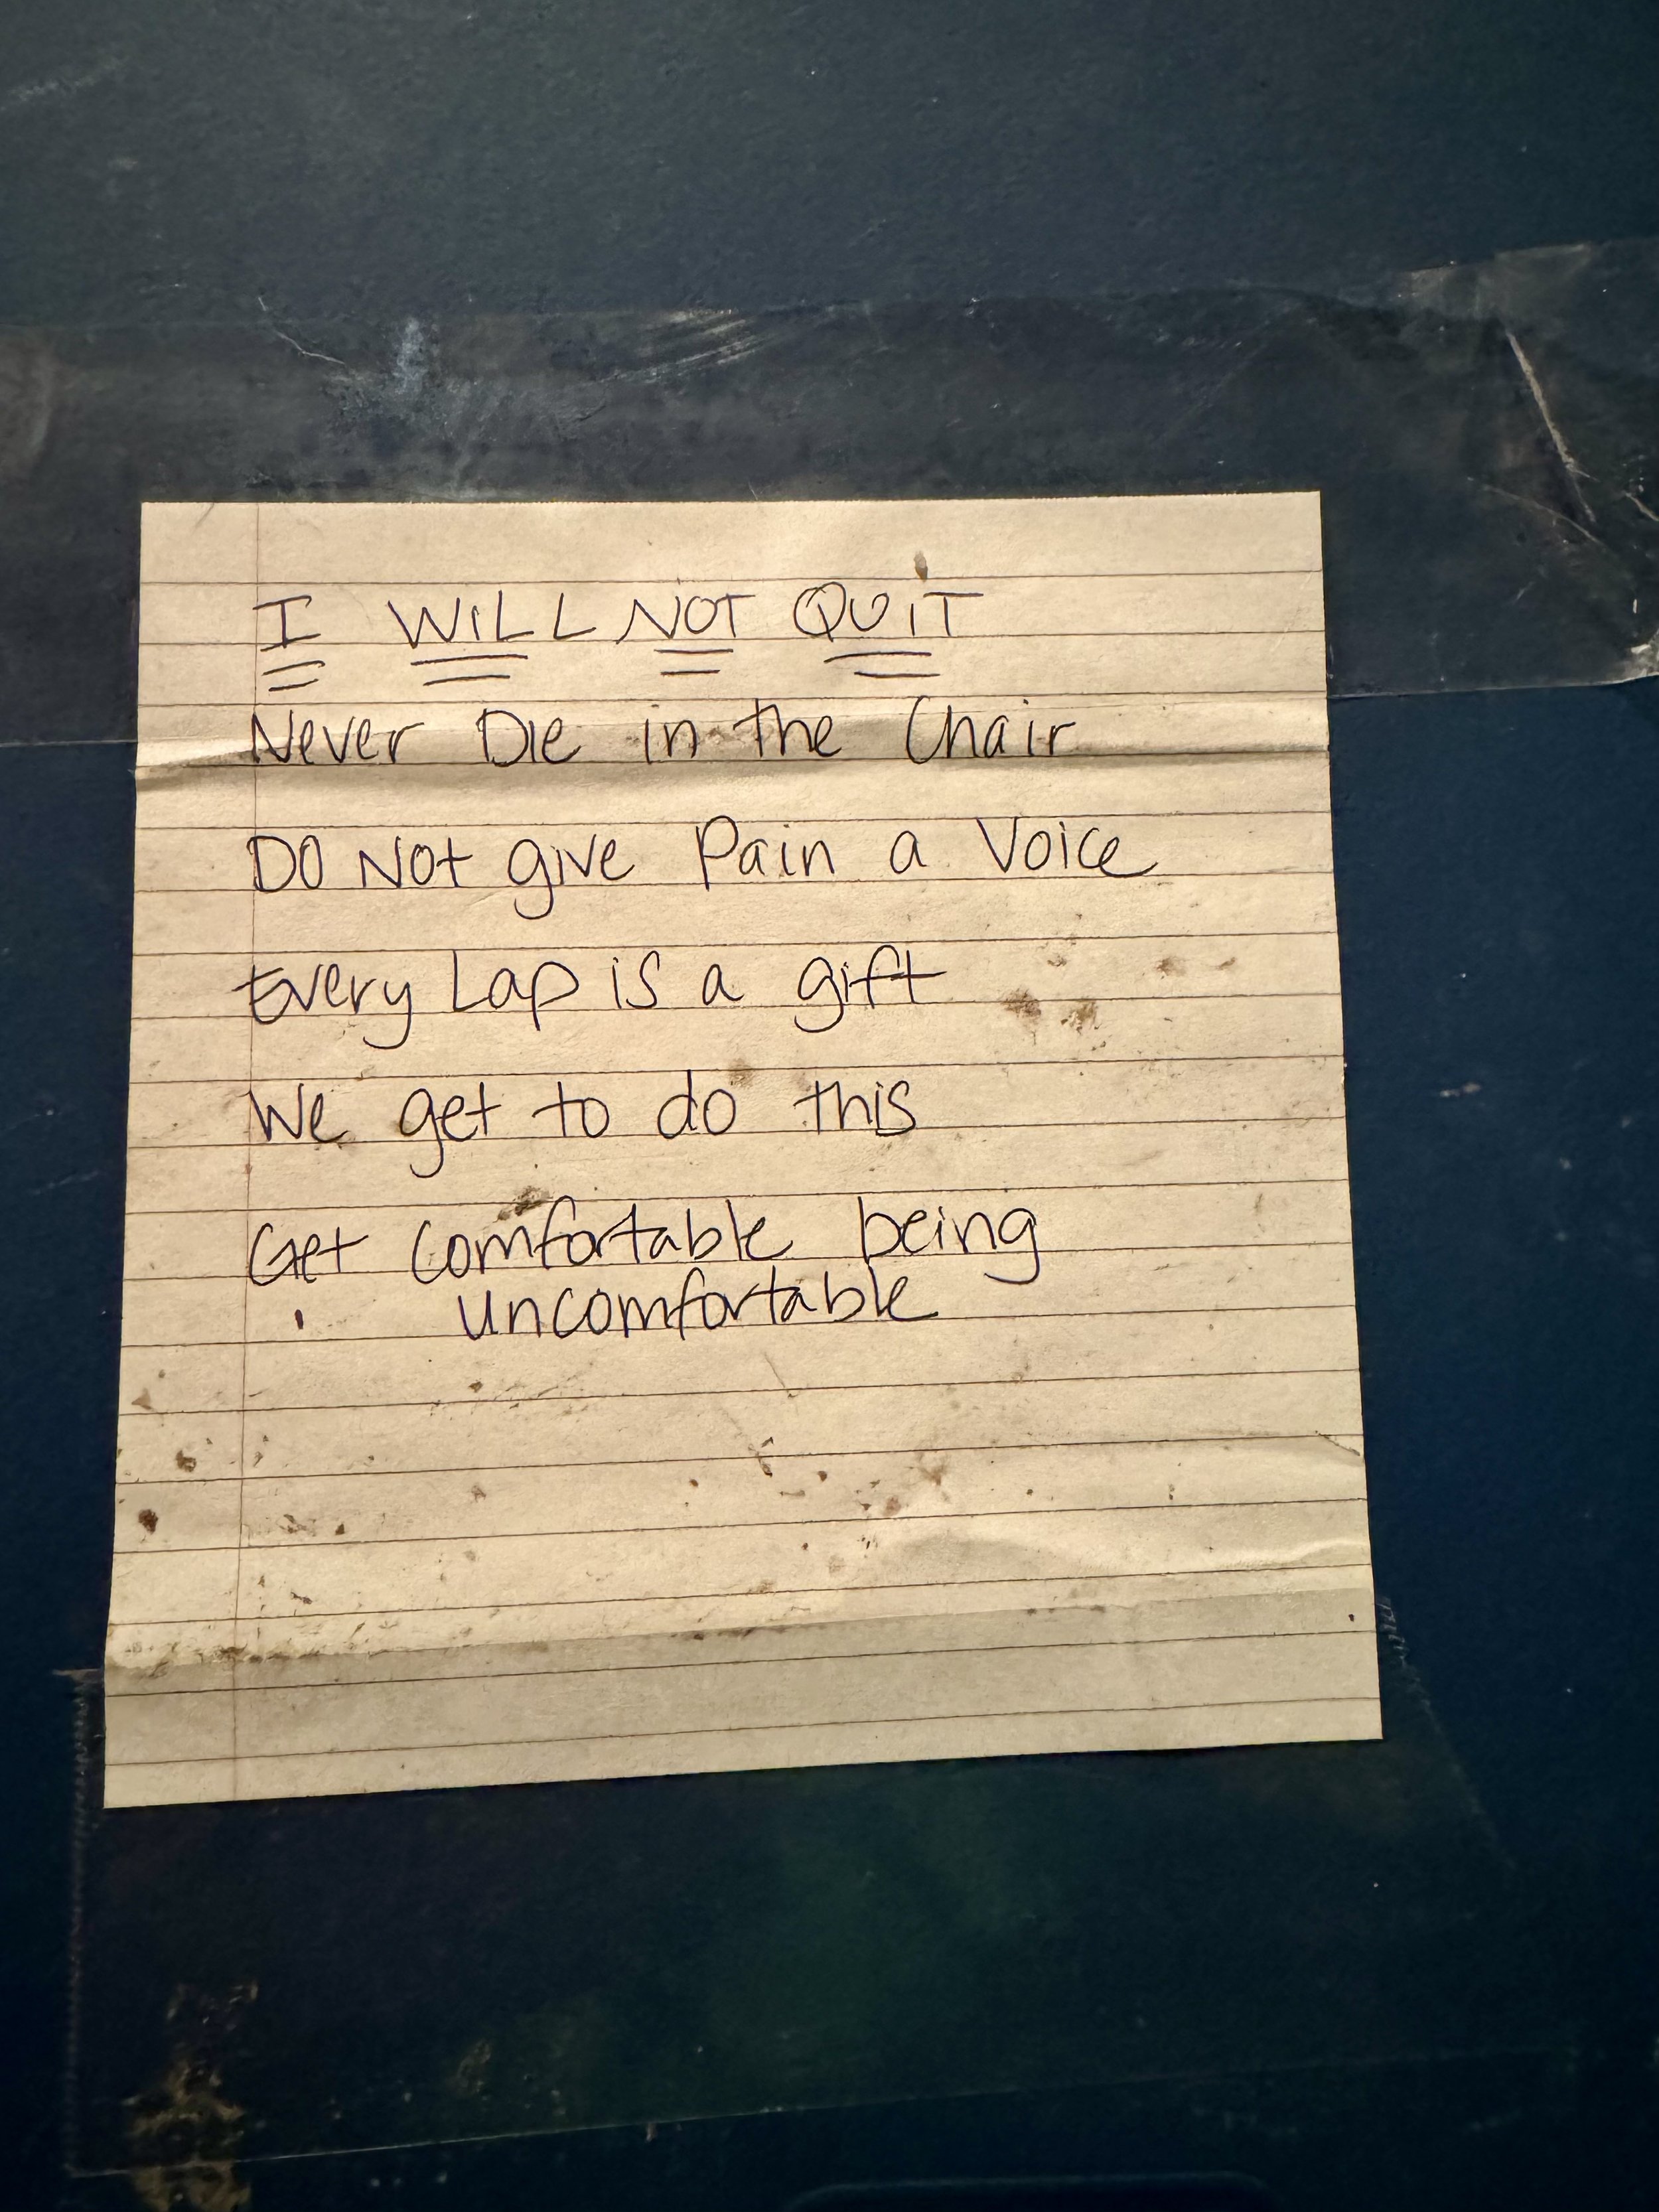 I WILL NOT QUIT
Never Die in the Chair
DO NOt give Pain a Voice
Every Lap is a gift
We get to do this
Get Comfortable being
uncomfortable